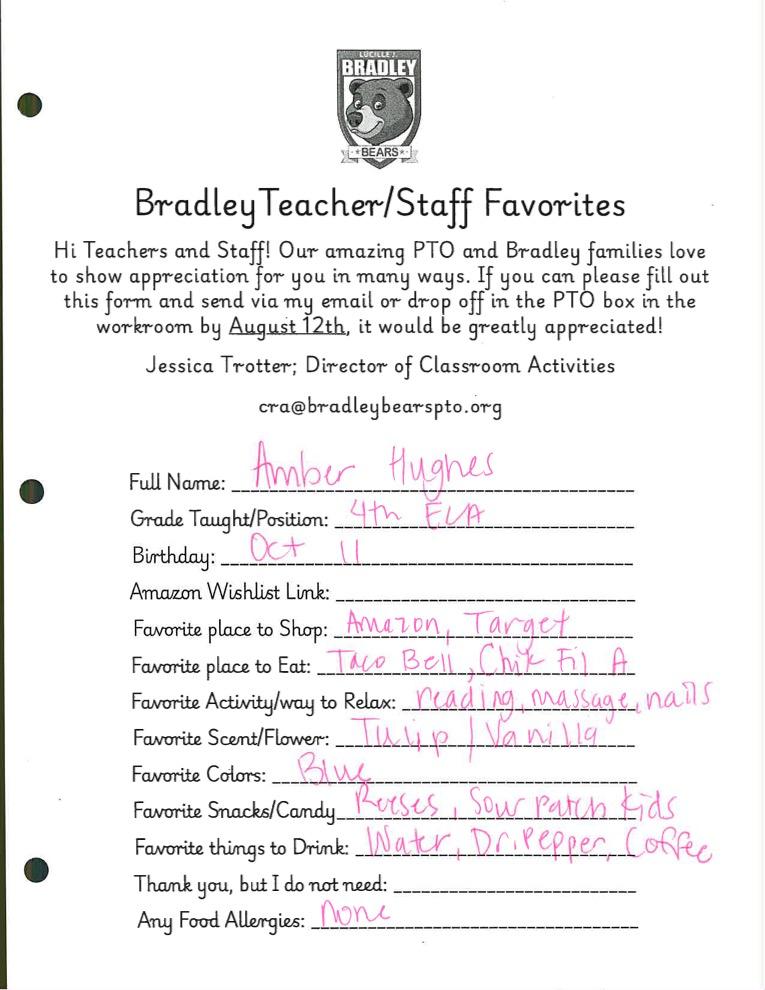 LUCILLE J.
BRADLEY
★BEARS★
Bradley Teacher/Staff Favorites
Hi Teachers and Staff! Our amazing PTO and Bradley families love
to show appreciation for you in many ways. If you can please fill out
this form and send via my email or drop off in the PTO box in the
workroom by August 12th, it would be greatly appreciated!
Jessica Trotter; Director of Classroom Activities
cra@bradleybearspto.org
Full Name: Amber Hughes
Grade Taught/Position: 4th ELA
Birthday: Oct 11
Amazon Wishlist Link:
Favorite place to Shop: Amazon, Target
Favorite place to Eat: Taco Bell, Chik Fil A
Favorite Activity/way to Relax: reading, massage, nails
Favorite Scent/Flower: Tulip / Vanilla
Favorite Colors: Blue
Favorite Snacks/Candy Reeses, Sour patch kids
Favorite things to Drink: Water, Dr. Pepper, Coffee
Thank you, but I do not need:
Any Food Allergies: None